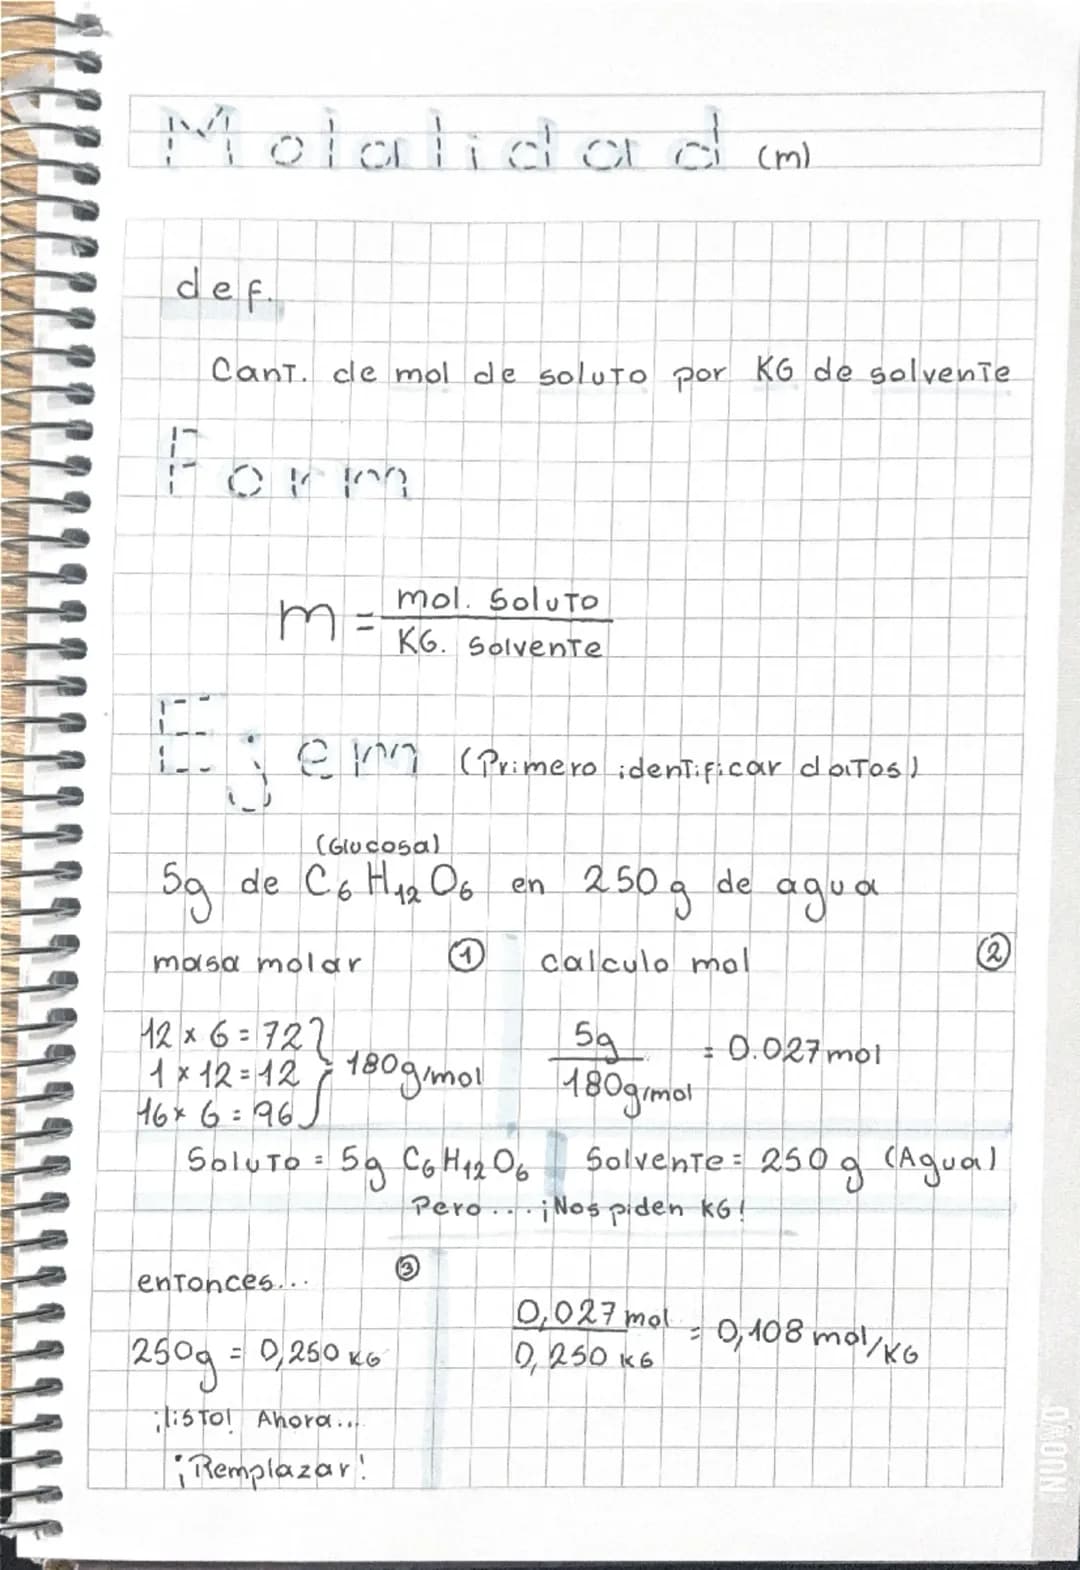 Molalidad (m)
def.
Cant. de mol de soluto por KG de solvente
Form
m = mol. Soluto / KG. Solvente
Ejem (Primero identificar datos)
(Glucosa)
5g de C6 H12 O6 en 250 g de agua
masa molar ① calculo mol ②
12 x 6 = 72
1 x 12 = 12
16 x 6 = 96
} 180g/mol
5g / 180g/mol = 0.027 mol
Soluto = 5g C6 H12 O6 Solvente = 250 g (Agua)
Pero... ¡Nos piden KG!
entonces... ③
250g = 0,250 KG
0,027 mol / 0,250 KG = 0,108 mol/KG
¡listo! Ahora...
¡Remplazar!
NUOVO